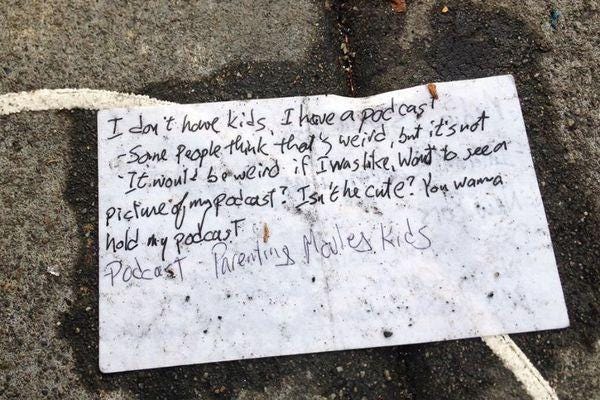 I don't have kids, I have a podcast
-Some People think that's weird, but it's not
-It would be weird if I was like, Want to see a
picture of my podcast? Isn't he cute? You wanna
hold my podcast
Podcast Parenting Movies Kids